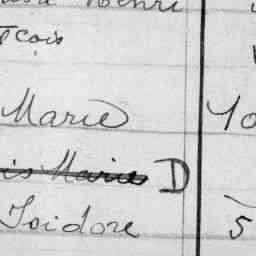 Henri
çois
Marie 40
is Marie D
Isidore 5